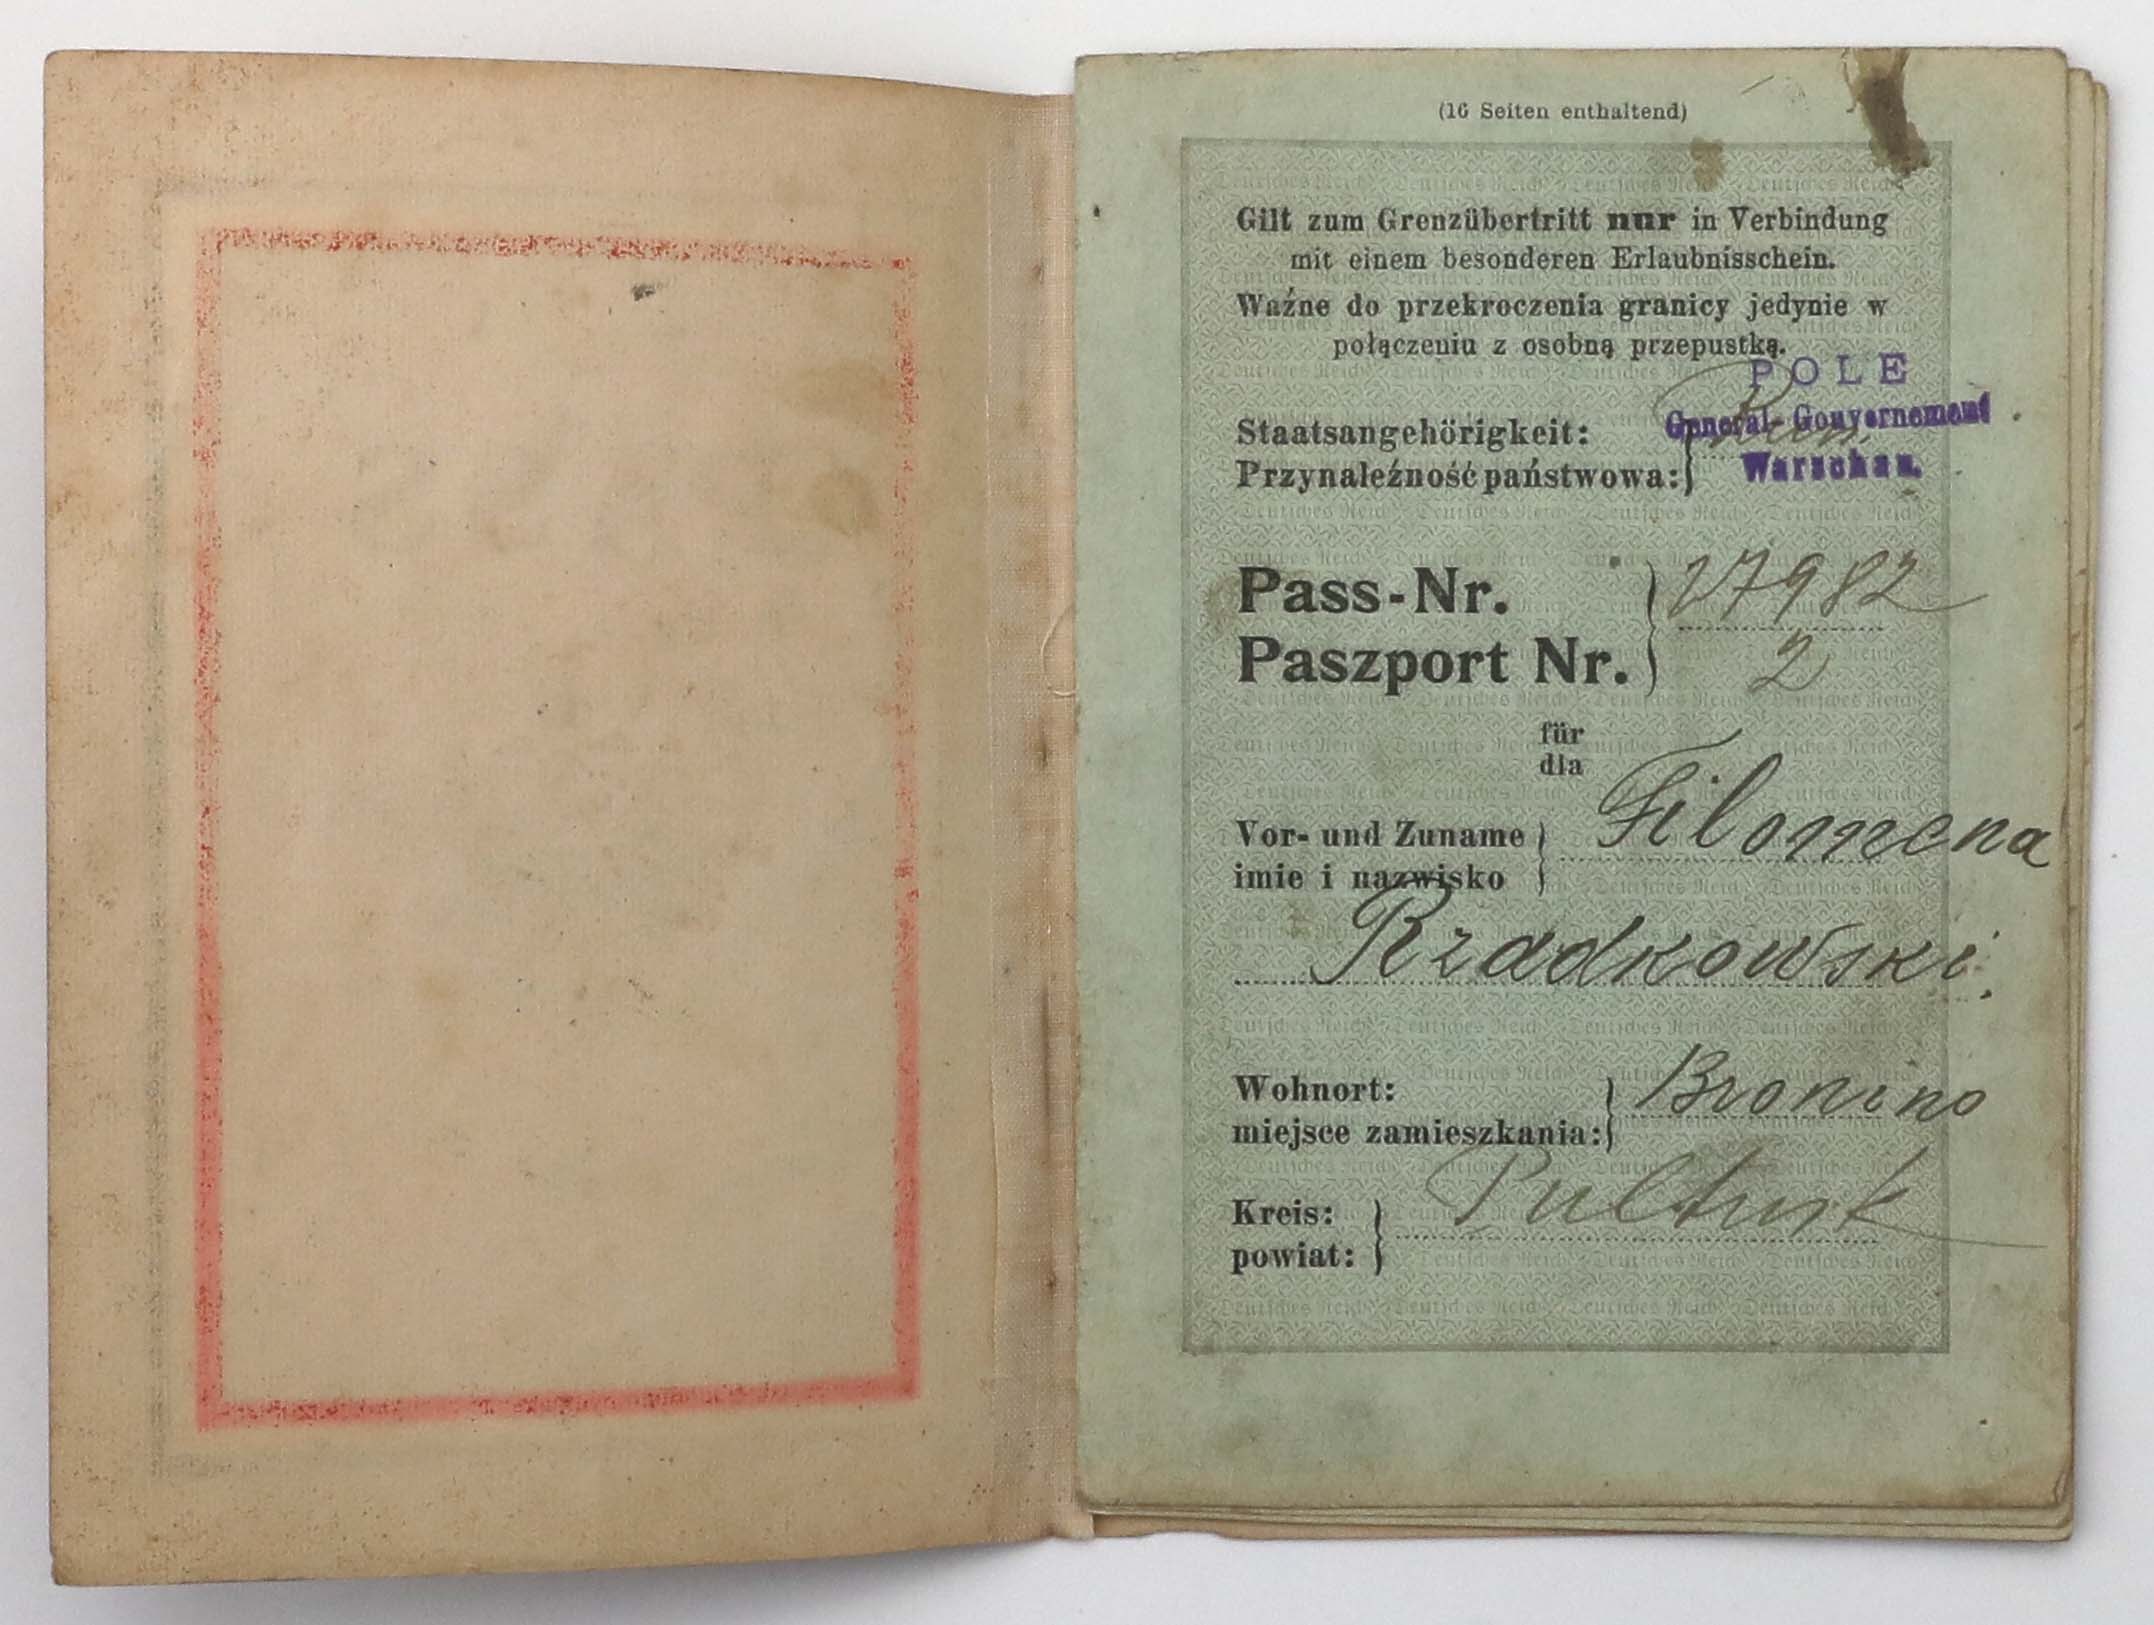 (16 Seiten enthaltend)
Gilt zum Grenzübertritt nur in Verbindung
mit einem besonderen Erlaubnisschein.
Ważne do przekroczenia granicy jedynie w
połączeniu z osobną przepustką.
POLE
General-Gouvernement
Warschau.
Staatsangehörigkeit:
Przynależność państwowa:
Pass-Nr. 27982
Paszport Nr. 2
für
dla
Vor- und Zuname Filomena
imie i nazwisko
Rzadkowski.
Wohnort: Bronino
miejsce zamieszkania:
Kreis: Pultusk
powiat: